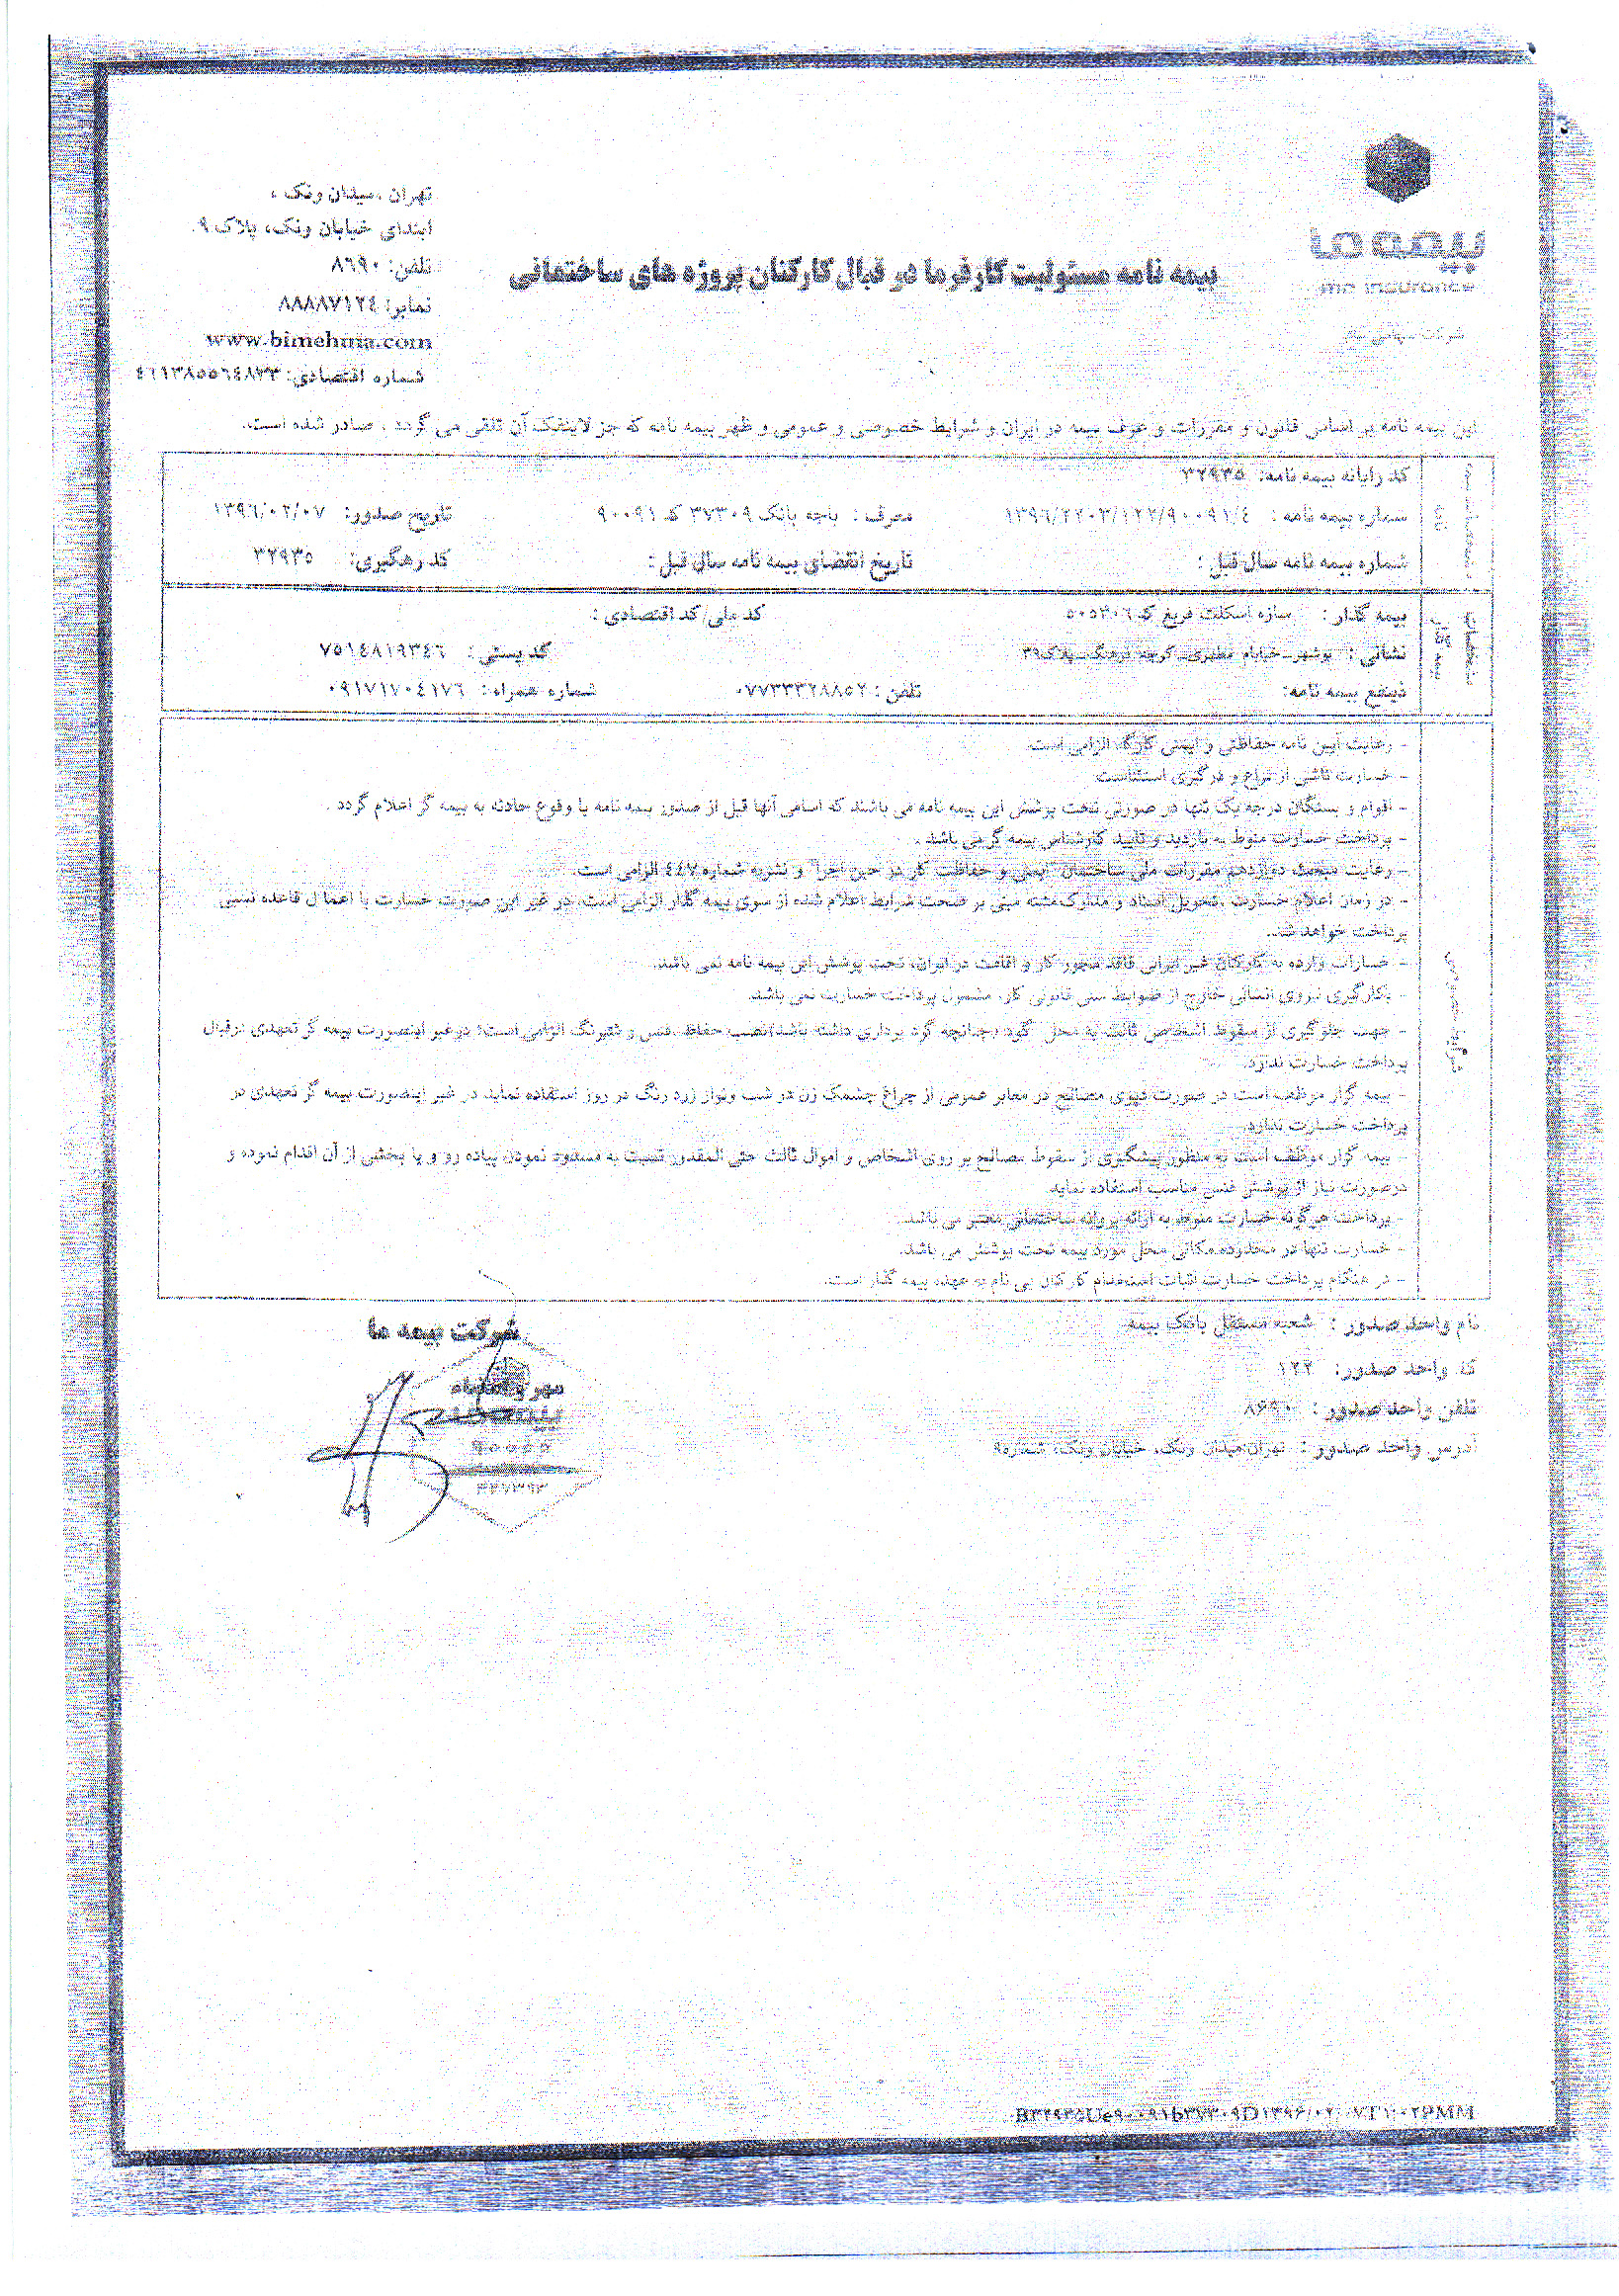 بیمه ما
ma insurance
شرکت سهامی عام
بیمه نامه مسئولیت کارفرما در قبال کارکنان پروژه های ساختمانی
تهران ، میدان ونک ،
ابتدای خیابان ونک، پلاک ۹
تلفن: ۸۶۹۰
نمابر: ۸۸۸۸۷۱۲٤
www.bimehma.com
شماره اقتصادی:
این بیمه نامه بر اساس قانون و مقررات و عرف بیمه در ایران و شرایط خصوصی و عمومی و ظهر بیمه نامه که جز لاینفک آن تلقی می گردد ، صادر شده است.
کد رایانه بیمه نامه: ۳۲۹۳۵
شماره بیمه نامه : ۱۳۹٦/۲۲۰۲/۱۲۲/۹۰۰۹۱/٤ معرف : باجه بانک ۳۷۳۰۹ کد ۹۰۰۹۱ تاریخ صدور: ۱۳۹٦/۰۲/۰۷
شماره بیمه نامه سال قبل : تاریخ انقضای بیمه نامه سال قبل : کد رهگیری: ۳۲۹۳۵
بیمه گذار : سازه اسکلت فریغ کد ۵۰۵۳۰٦ کد ملی/کد اقتصادی :
نشانی : بوشهر_خیابام مطهری_کوچه فرهنگ_پلاک۳۹ کد پستی : ۷۵۱٤۸۱۹۳٤٦
ذینفع بیمه نامه: تلفن : ۰۷۷۳۳۳۲۸۸۵۲ شماره همراه: ۰۹۱۷۱۷۰٤۱۷٦
- رعایت آیین نامه حفاظتی و ایمنی کارگاه الزامی است.
- خسارت ناشی از نزاع و درگیری استثناست.
- اقوام و بستگان درجه یک تنها در صورتی تحت پوشش این بیمه نامه می باشند که اسامی آنها قبل از صدور بیمه نامه یا وقوع حادثه به بیمه گر اعلام گردد .
- پرداخت خسارت منوط به بازدید و تایید کارشناس بیمه گر می باشد .
- رعایت مبحث دوازدهم مقررات ملی ساختمان "ایمنی و حفاظت کار در حین اجرا" و نشریه شماره ٤٤۷ الزامی است.
- در زمان اعلام خسارت ،تحویل اسناد و مدارک مثبته مبنی بر صحت شرایط اعلام شده از سوی بیمه گذار الزامی است. در غیر این صورت خسارت با اعمال قاعده نسبی
پرداخت خواهد شد.
- خسارات وارده به کارکنان غیر ایرانی فاقد مجوز کار و اقامت در ایران، تحت پوشش این بیمه نامه نمی باشد.
- بکارگیری نیروی انسانی خارج از ضوابط سنی قانونی کار، مشمول پرداخت خسارت نمی باشد.
- جهت جلوگیری از سقوط اشخاص ثالث به محل گود (چنانچه گود برداری داشته باشد)نصب حفاظ، فنس و شبرنگ الزامی است؛ درغیر اینصورت بیمه گر تعهدی درقبال
پرداخت خسارت ندارد.
- بیمه گزار موظف است در صورت دپوی مصالح در معابر عمومی از چراغ چشمک زن در شب ونوار زرد رنگ در روز استفاده نماید در غیر اینصورت بیمه گر تعهدی در
پرداخت خسارت ندارد.
- بیمه گزار موظف است به منظور پیشگیری از سقوط مصالح بر روی اشخاص و اموال ثالث حتی المقدور نسبت به مسدود نمودن پیاده رو و یا بخشی از آن اقدام نموده و
درصورت نیاز از پوشش فنس مناسب استفاده نماید.
- پرداخت هرگونه خسارت منوط به ارائه پروانه ساختمانی معتبر می باشد.
- خسارت تنها در محدوده مکانی محل مورد بیمه تحت پوشش می باشد.
- در هنگام پرداخت خسارت اثبات استخدام کارکنان بی نام به عهده بیمه گذار است.
نام واحد صدور : شعبه مستقل بانک بیمه
کد واحد صدور: ۱۲۲
تلفن واحد صدور : ۸۶۹۰
آدرس واحد صدور : تهران،میدان ونک، خیابان ونک، شماره۹
شرکت بیمه ما
مهر و امضاء